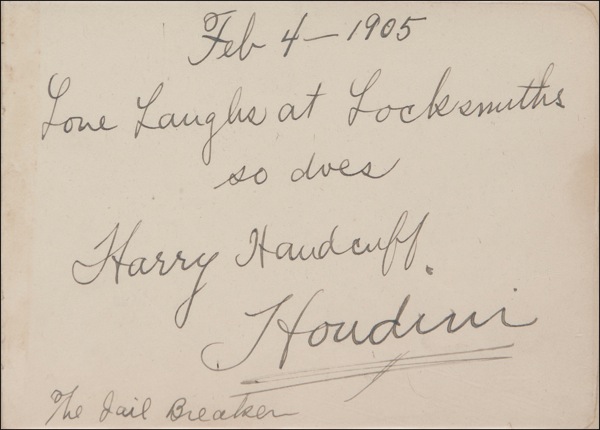 Feb 4 - 1905
Love Laughs at Locksmiths
so does
Harry Handcuff
Houdini
The Jail Breaker